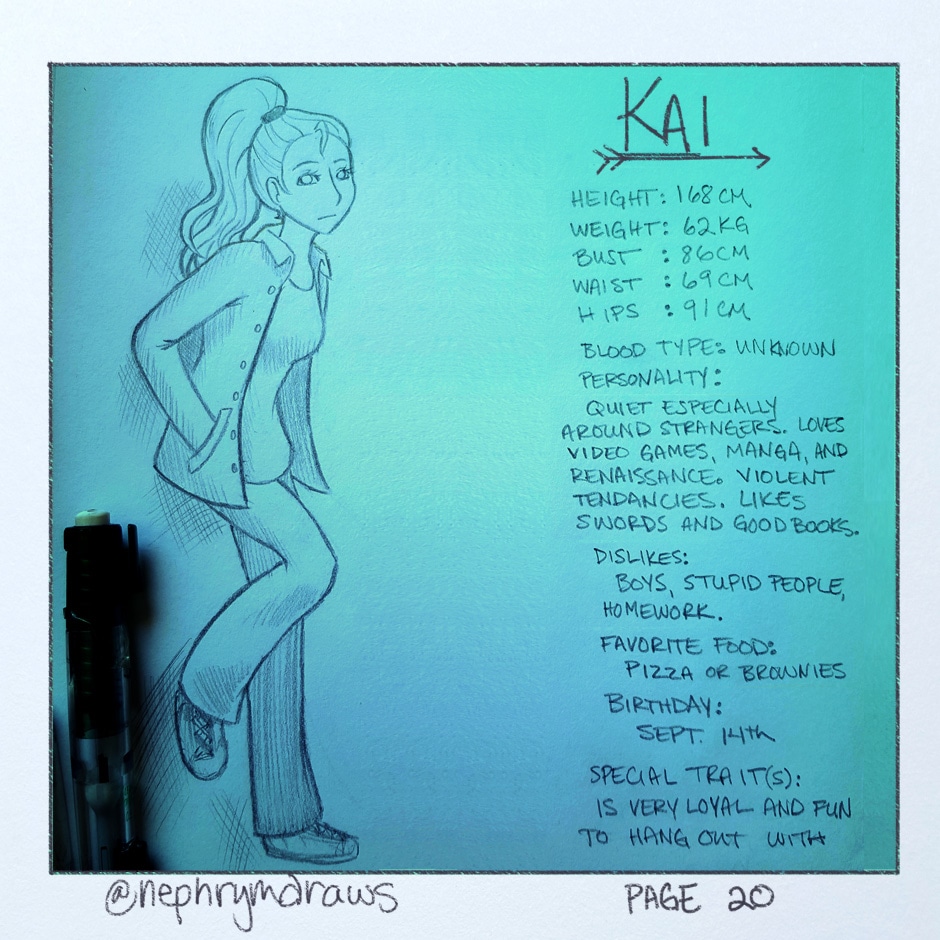 KAI
HEIGHT: 168CM
WEIGHT: 62KG
BUST : 86CM
WAIST : 69CM
HIPS : 91CM
BLOOD TYPE: UNKNOWN
PERSONALITY:
QUIET ESPECIALLY
AROUND STRANGERS. LOVES
VIDEO GAMES, MANGA, AND
RENAISSANCE. VIOLENT
TENDANCIES. LIKES
SWORDS AND GOOD BOOKS.
DISLIKES:
BOYS, STUPID PEOPLE,
HOMEWORK.
FAVORITE FOOD:
PIZZA OR BROWNIES
BIRTHDAY:
SEPT. 14th
SPECIAL TRAIT(S):
IS VERY LOYAL AND FUN
TO HANG OUT WITH
@nephrymdraws
PAGE 20